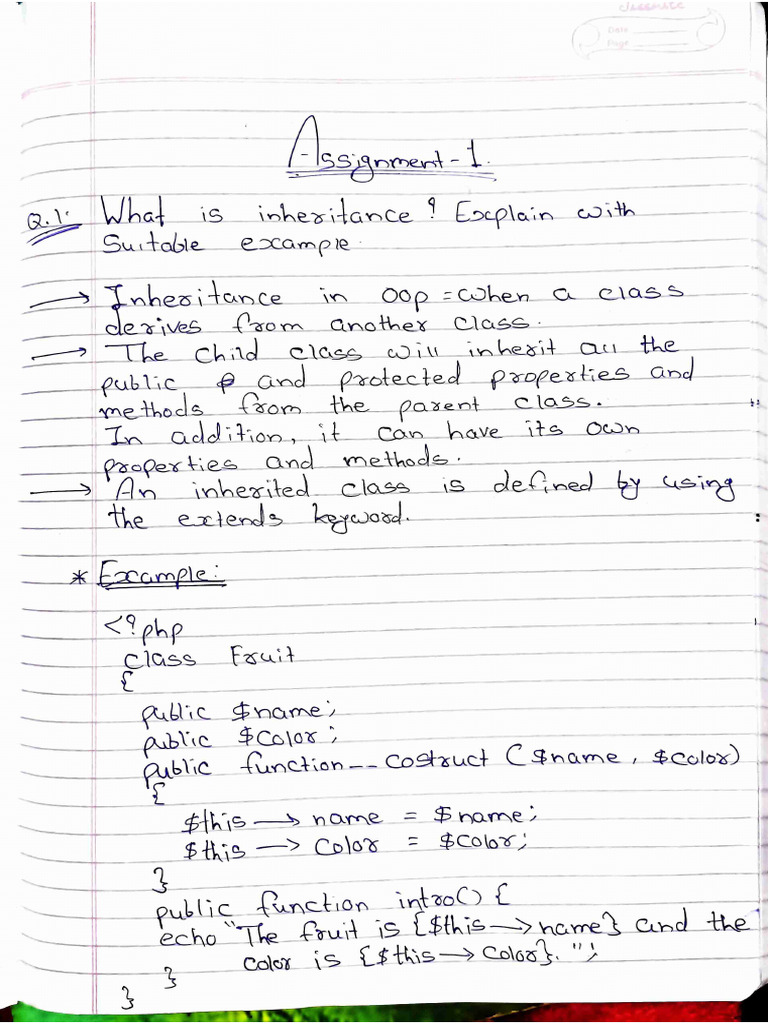 classmate
Date
Page
Assignment-1.
Q.1: What is inheritance? Explain with
Suitable example.
→ Inheritance in OOP = when a class
derives from another class.
→ The child class will inherit all the
public and protected properties and
methods from the parent class.
In addition, it can have its own
properties and methods.
→ An inherited class is defined by using
the extends keyword.
* Example:
<?php
class Fruit
{
public $name;
public $color;
public function __costruct ($name, $color)
{
$this → name = $name;
$this → color = $color;
}
public function intro() {
echo "The fruit is {$this → name} and the
color is {$this → color}.";
}
}